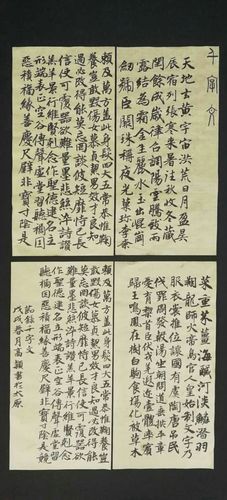 千字文
天地玄黃宇宙洪荒日月盈昃
辰宿列張寒來暑往秋收冬藏
閏餘成歲律召調陽雲騰致雨
露結為霜金生麗水玉出崑崗
劍號巨闕珠稱夜光菓珍李柰
菜重芥薑海鹹河淡鱗潛羽
翔龍師火帝鳥官人皇始制文字乃
服衣裳推位讓國有虞陶唐弔民
伐罪周發殷湯坐朝問道垂拱平章
愛育黎首臣伏戎羌遐邇壹體率賓
歸王鳴鳳在樹白駒食場化被草木
賴及萬方蓋此身髮四大五常恭惟鞠
養豈敢毀傷女慕貞潔男效才良知
過必改得能莫忘罔談彼短靡恃己長
信使可覆器欲難量墨悲絲淬詩讚
羔羊景行維賢剋念作聖德建名立
形端表正空谷傳聲虛堂習聽禍因
惡積福緣善慶尺璧非寶寸陰是
賴及萬方蓋此身髮四大五常恭惟鞠養豈
敢毀傷女慕貞潔男效才良知過必改得能
莫忘罔談彼短靡恃己長信使可覆器欲
難量墨悲絲淬詩讚羔羊景行維賢剋念
作聖德建名立形端表正空谷傳聲虛堂習
聽禍因惡積福緣善慶尺璧非寶寸陰是競
節錄千字文
戊戌春月高穎書於太原